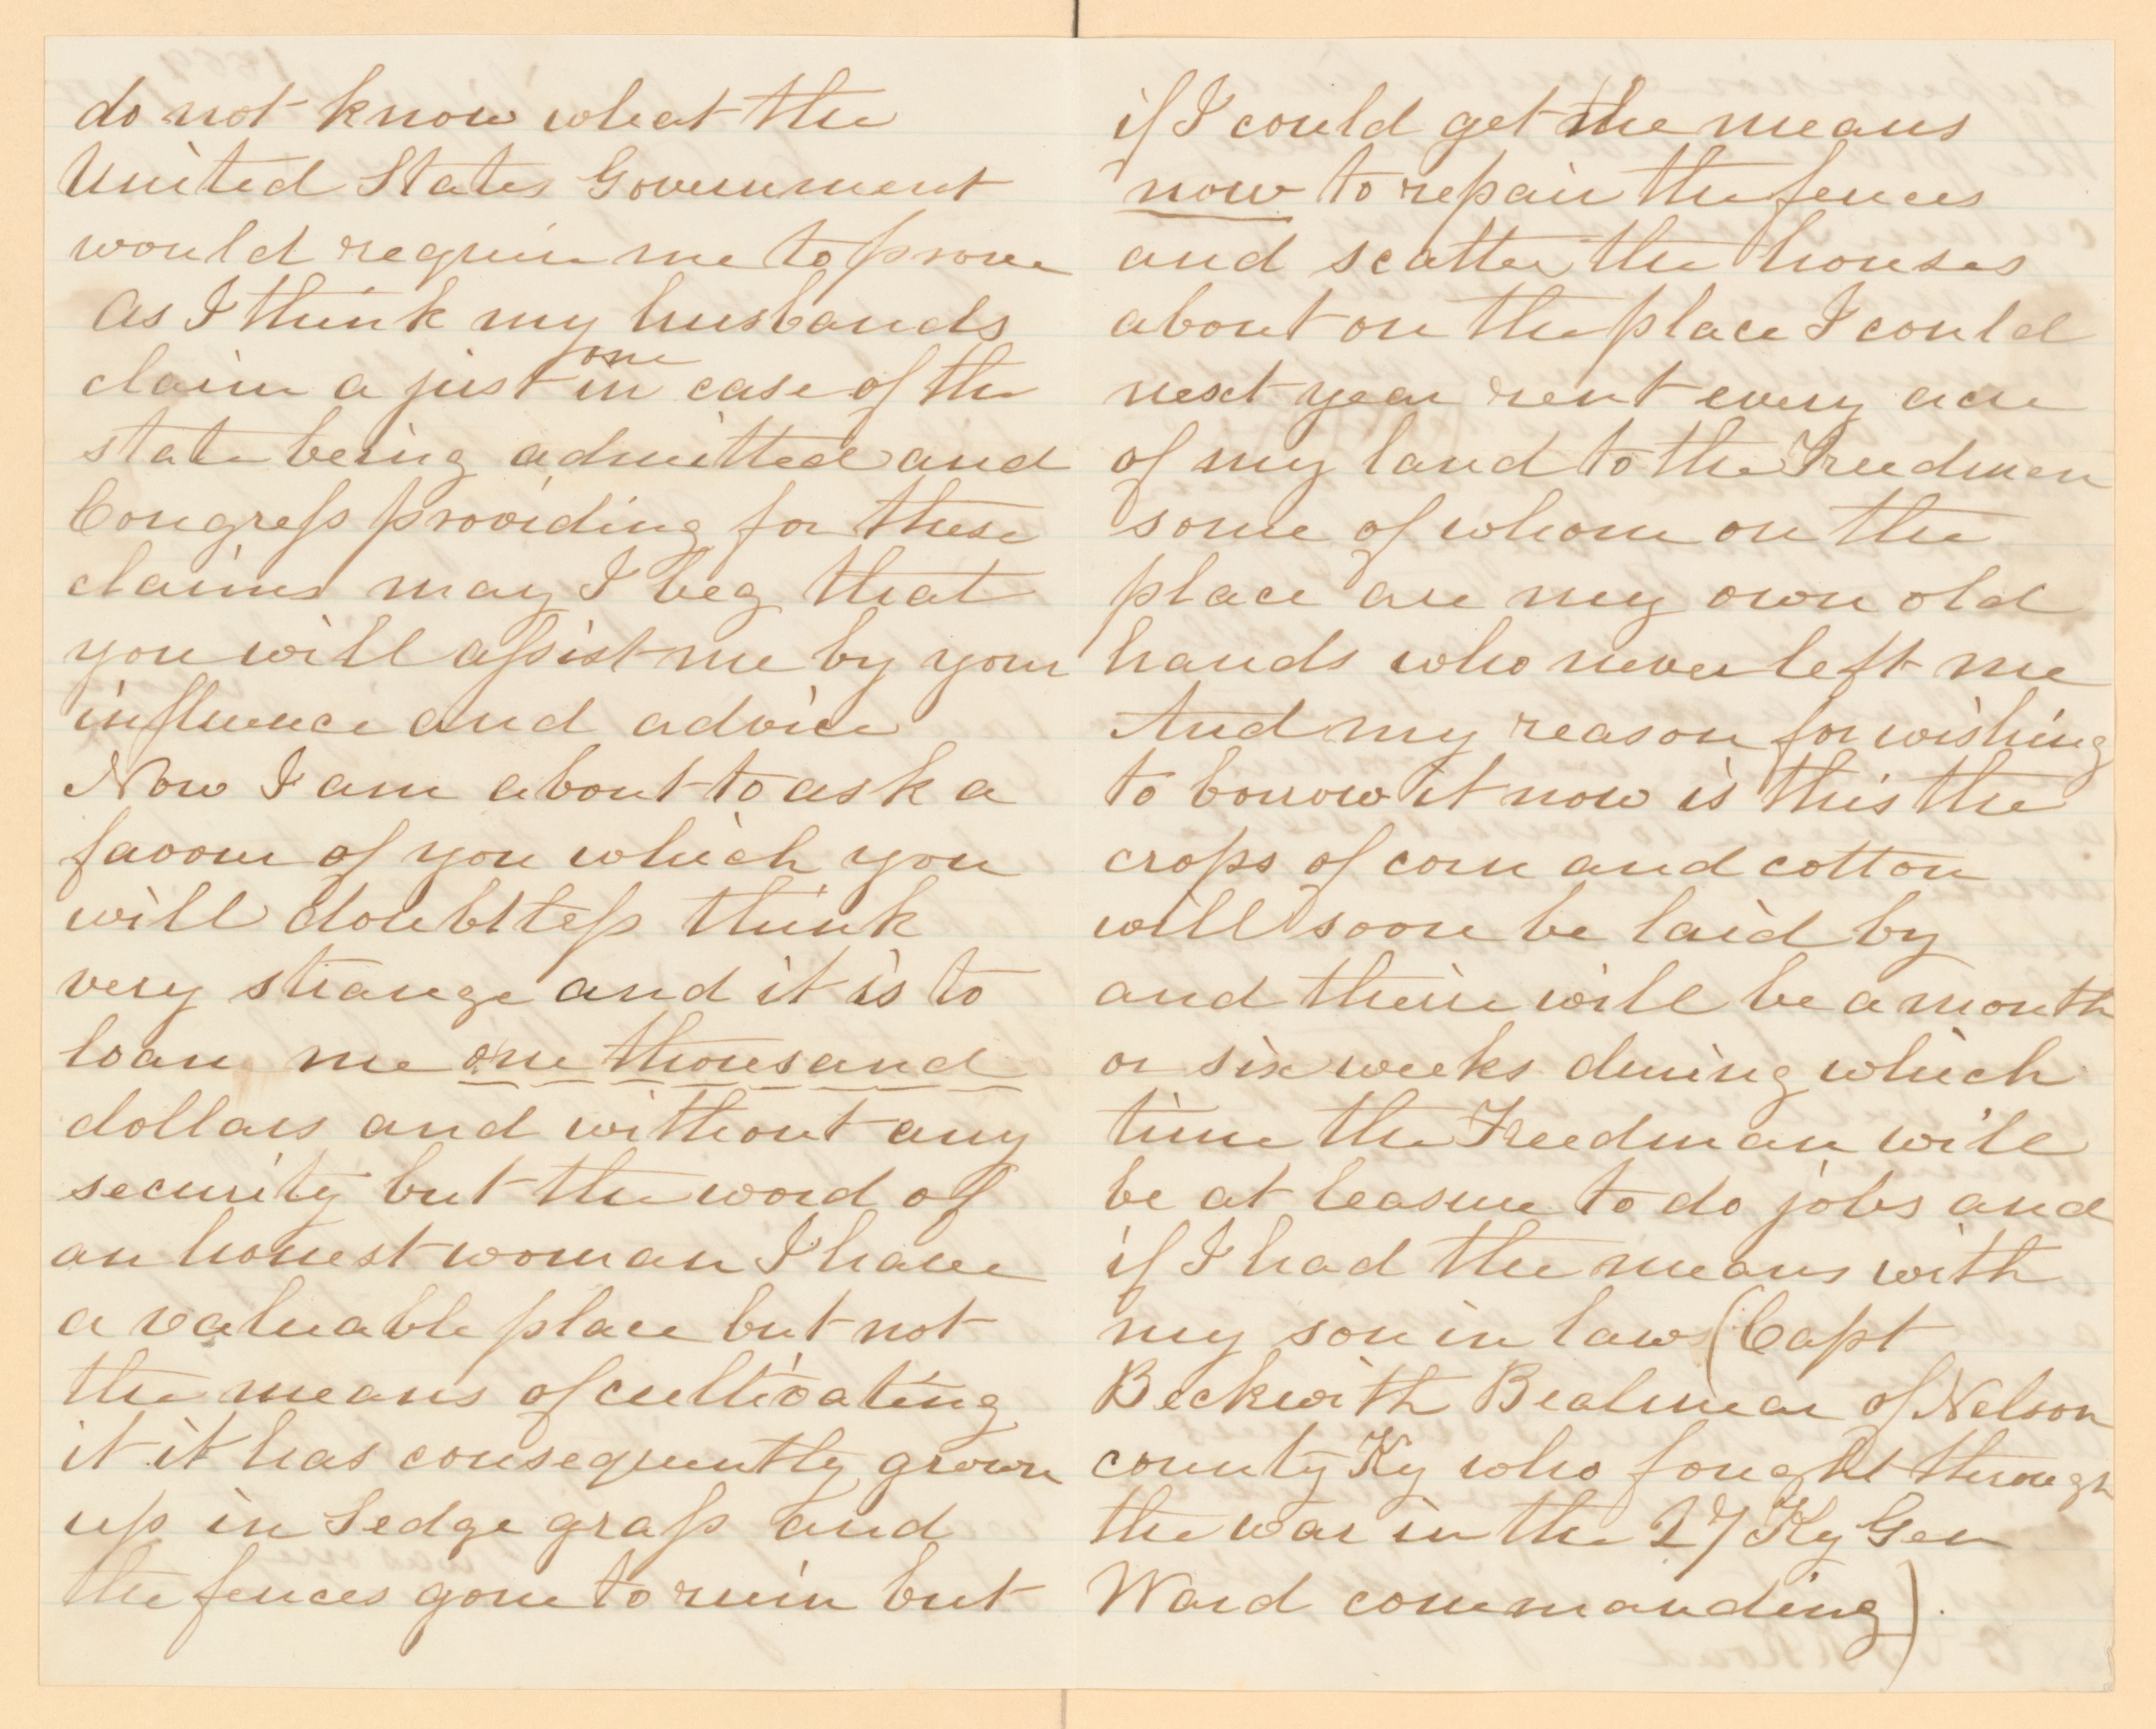 do not know what the
United States Government
would require me to prove
As I think my husbands
one
claim a just in case of the
state being admitted and
Congress providing for these
claims may I beg that
you will assist me by your
influence and advice
Now I am about to ask a
favour of you which you
will doubtless think
very strange and it is to
loan me one thousand
dollars and without any
security but the word of
an honest woman I have
a valuable place but not
the means of cultivating
it it has consequently grown
up in Sedge grass and
the fences gone to ruin but
if I could get the means
now to repair the fences
and scatter the houses
about on the place I could
next year rent every acre
of my land to the Freedmen
some of whom on the
place are my own old
hands who never left me
And my reason for wishing
to borrow it now is this the
crops of corn and cotton
will soon be laid by
and there will be a month
or six weeks during which
time the Freedman will
be at leasure to do jobs and
if I had the means with
my son in law (Capt
Beckwith Bealmear of Nelson
county Ky who fought through
the war in the 27 Ky Gen
Ward commanding).